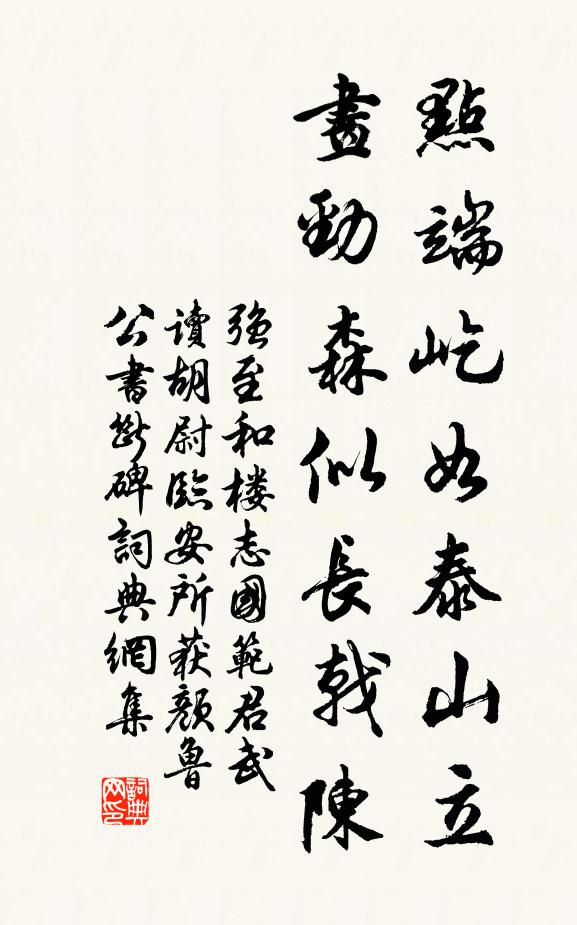 點端屹如泰山立
畫勁森似長戟陳
強至和楼志國範君武
讀胡尉臨安所获顏魯
公書斷碑詞典網集
詞典网印